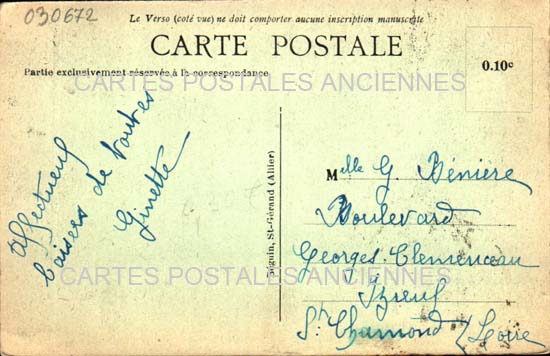 030672
Le Verso (coté vue) ne doit comporter aucune inscription manuscrite
CARTE POSTALE
Partie exclusivement réservée à la correspondance
0.10c
CARTES POSTALES ANCIENNES
affectueux
baisers de toutes
Ginette
Béguin, St-Gérand (Allier)
Melle G. Bénière
Boulevard
Georges Clemenceau
St Chamond / Loire
CARTES POSTALES ANCIENNES